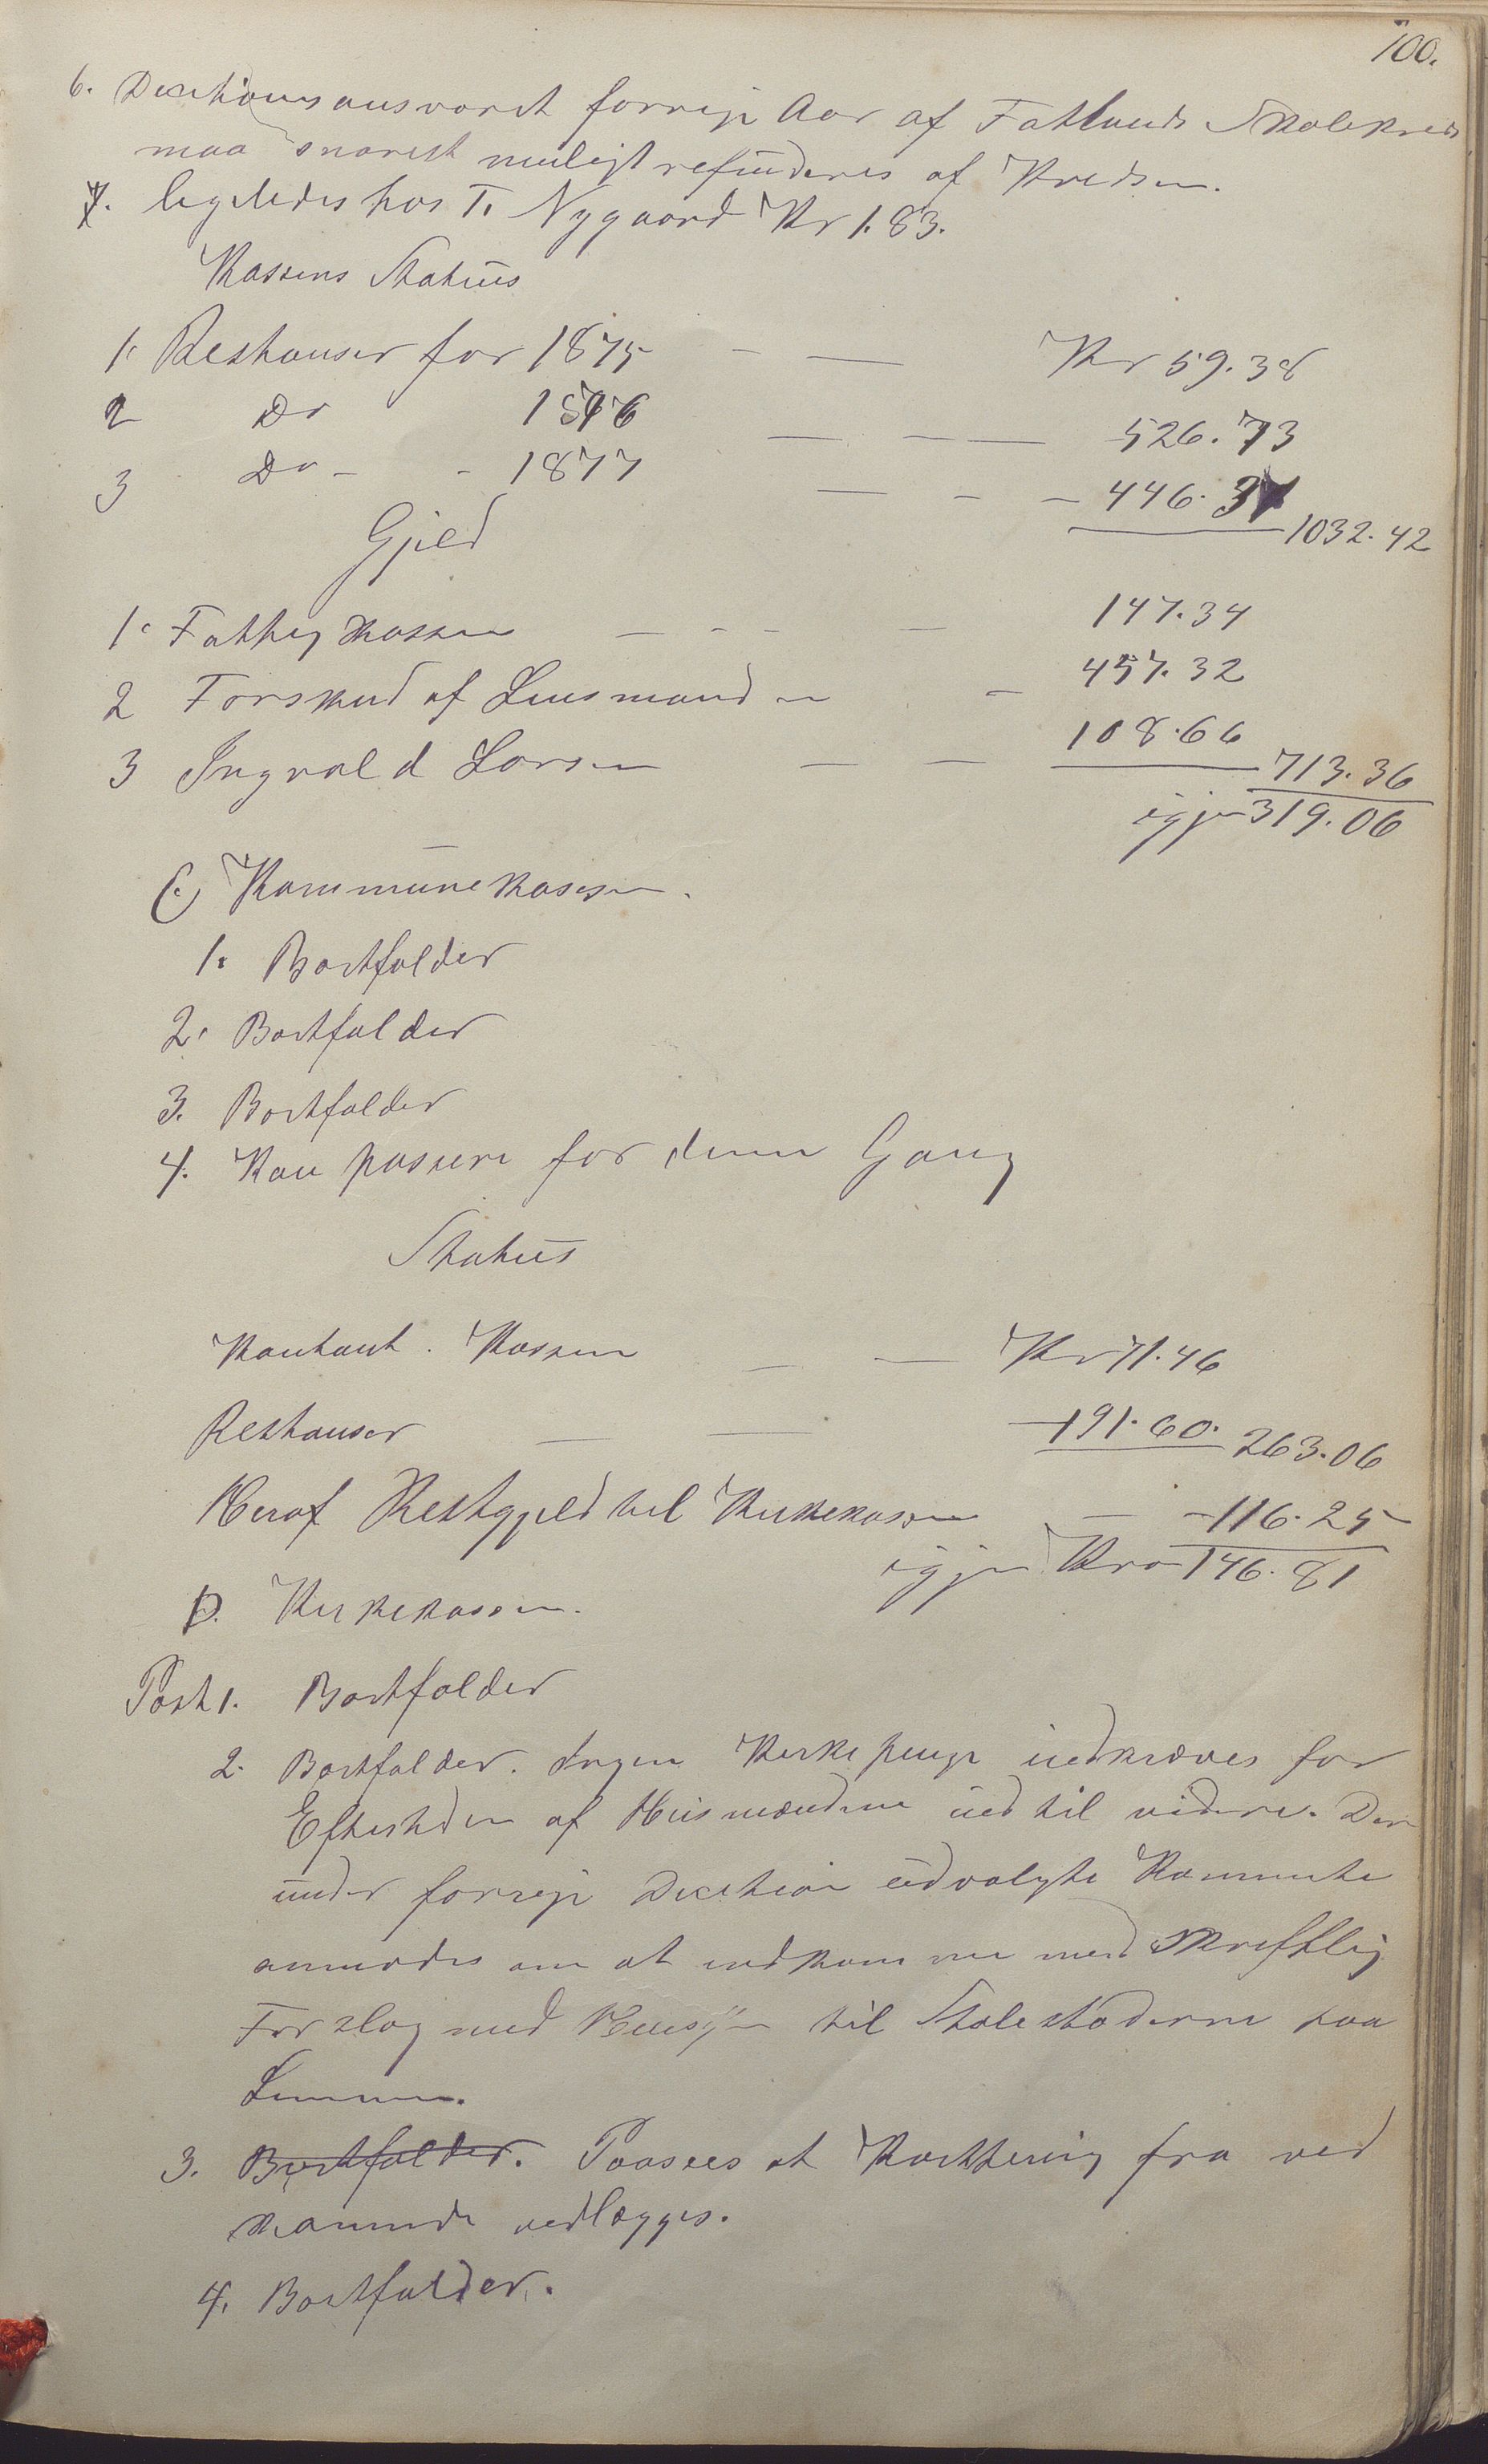 100.
6. Decisionsansvaret forrige Aar af Fatlands Skolekreds
maa snarest muligt refunderes af Kredsen.
7. ligeledes hos T. Nygaard Kr 1.83.
Kassens Status
1. Restanser for 1875 — — Kr 59.38
2 Do 1876 — — — 526.73
3 Do - - 1877 — - - 446.31
1032.42
Gjeld
1. Fattigkassen — - - — 147.34
2 Forskud af Lensmanden - 457.32
3 Ingvald Larsen — — 108.66
713.36
igjen 319.06
C, Kommunekassen.
1. Bortfalder
2. Bortfalder
3. Bortfalder
4. Kan passere for denne Gang
Status
Kontant. Kassen — — Kr 71.46
Restanser — — 191.60. 263.06
Heraf Restgjeld til Kirkekassen — - 116.25
igjen Kro 146.81
D. Kirkekassen.
Post 1. Bortfalder
2. Bortfalder. Ingen Kirkepenge indkræves for
Eftertiden af Husmændene indtil videre. Den
under forrige Decision udvalgte Kommite
anmodes om at indkomme med Skriftlig
Forslag med Hensyn til Stolestaderne paa
3. Bortfalder. Paasees at Kvittering fra ved
kommende vedlægges.
4. Bortfalder.